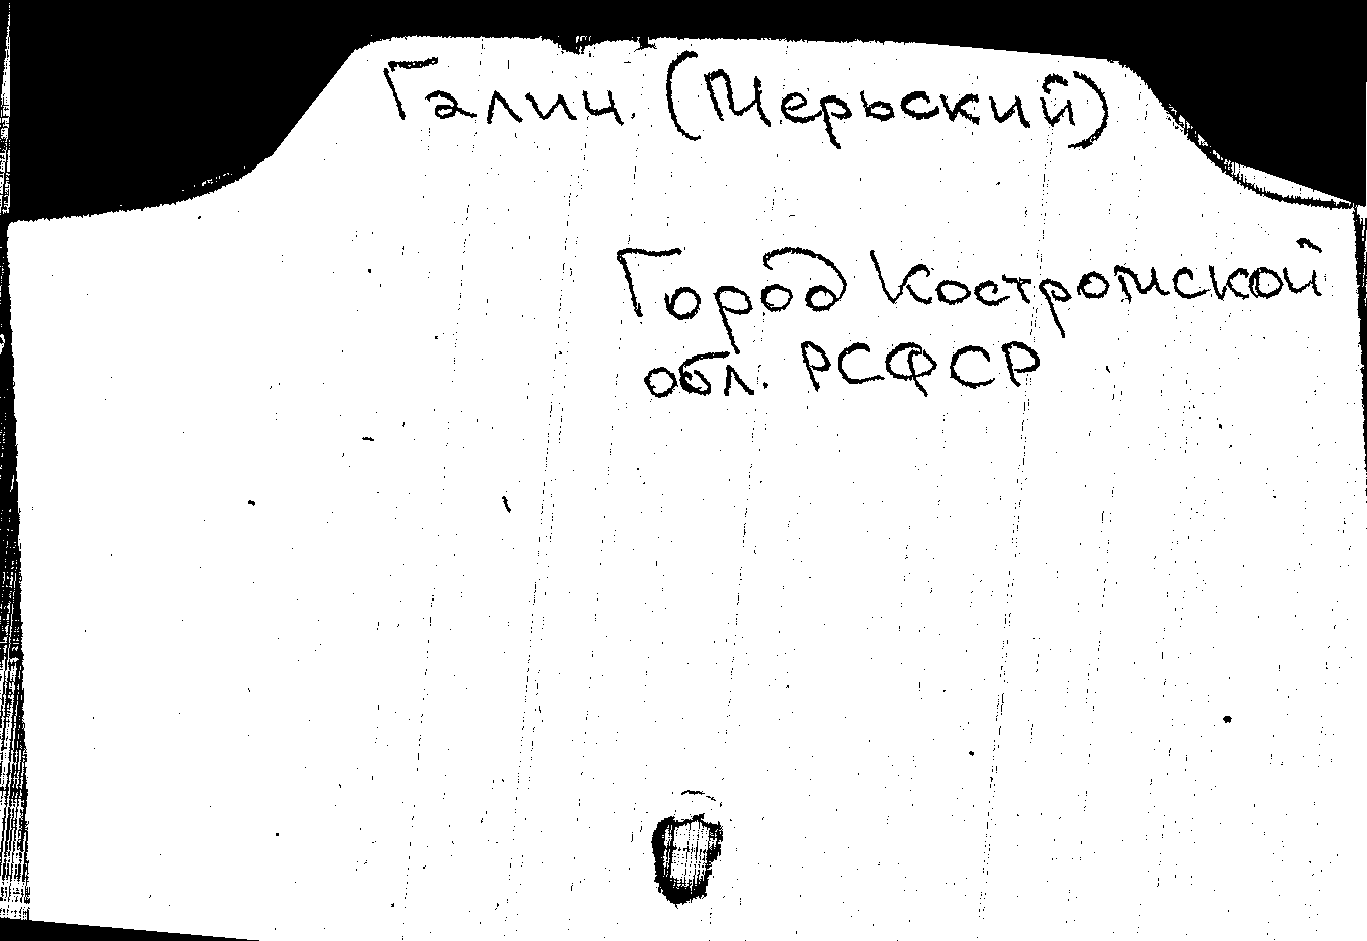 Галич. (Мерьский)
Город Костромской
обл. РСФСР